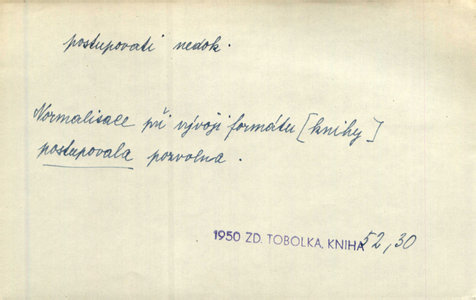 postupovati nedok.
Normalisace při vývoji formátu [knihy]
postupovala pozvolna.
1950 ZD. TOBOLKA, KNIHA 52,30